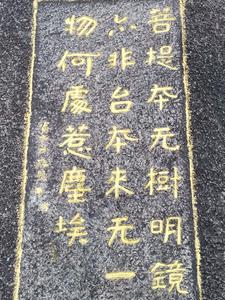 菩提本无树明镜
亦非台本来无一
物何處惹塵埃